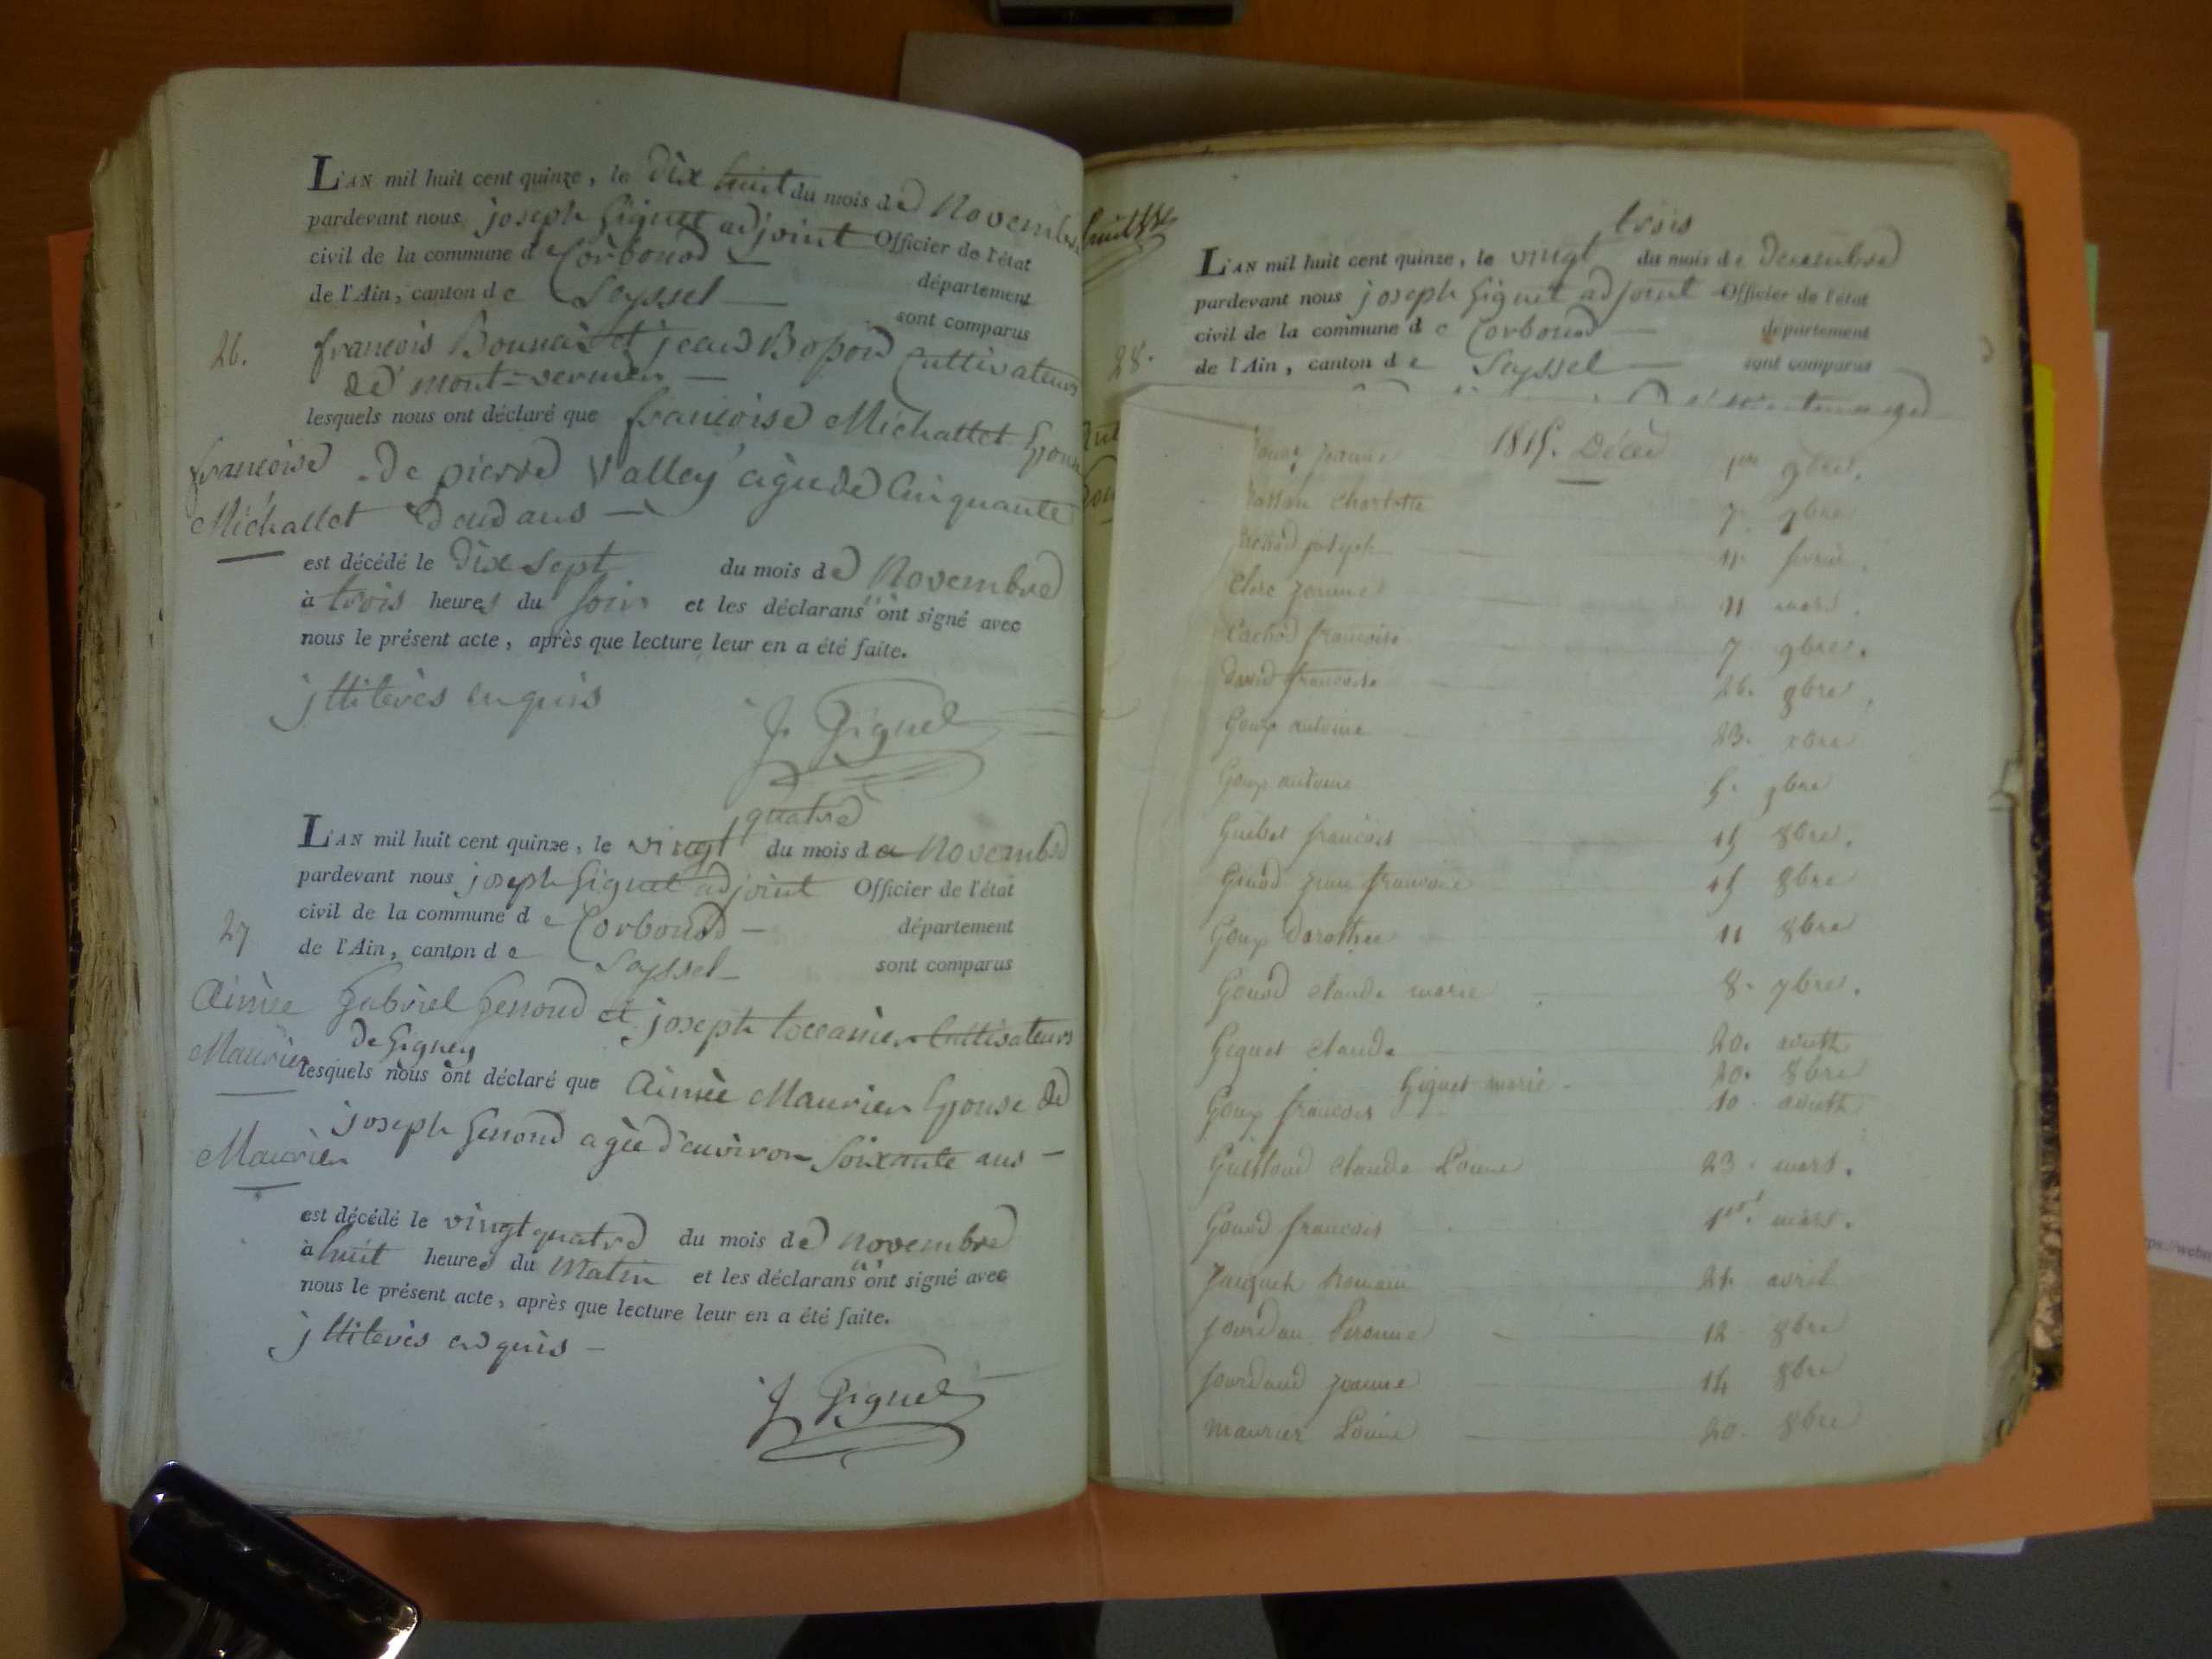 L'AN mil huit cent quinze, le dix huit du mois de Novembre
pardevant nous joseph Giguet adjoint Officier de l'état
civil de la commune de Corbonod — département
de l'Ain, canton de Seyssel — sont comparus
26. francois Bonnaz et jean Bosson Cultivateurs
de mont-vermier —
lesquels nous ont déclaré que francoise Michallet Epouse
francoise de pierre Valley agée de Cinquante
Michallet deux ans —
est décédé le dix sept du mois de Novembre
à trois heures du soir et les déclarans n'ont signé avec
nous le présent acte, après que lecture leur en a été faite.
jllitérés enquis
J. Giguet
quatre
L'AN mil huit cent quinze, le vingt du mois de Novembre
pardevant nous joseph Giguet adjoint Officier de l'état
civil de la commune de Corbonod — département
27
de l'Ain, canton de Seyssel — sont comparus
Aimée Gabriel Genoud et joseph Cultivateurs
Maurier de Gignez
lesquels nous ont déclaré que Aimée Maurier Epouse de
joseph Genoud agée d'environ Soixante ans —
Maurier
est décédé le vingt quatre du mois de novembre
à huit heures du Matin et les déclarans n'ont signé avec
nous le présent acte, après que lecture leur en a été faite.
jllitérés enquis —
J. Giguet
trois
L'AN mil huit cent quinze, le vingt du mois de Decembre
pardevant nous joseph Giguet adjoint Officier de l'état
civil de la commune de Corbonod — département
28. de l'Ain, canton de Seyssel — sont comparus
1815. Décès
jeanne 1er 9bre.
Charlotte 7. 7bre
joseph 11. fevrier.
Clerc jeanne 11 mars.
Cachod francoise 7 9bre.
David francoise 26. 9bre.
Goux antoine 23. xbre
Goux antoine 5. 9bre
Guibet francois 15 8bre.
Genod jean francois 15 8bre
Goux Dorothee 11 8bre
Genod claude marie 8. 7bre.
Giguet claude 20. aoutt
Giguet marie 20. 8bre
Goux francois 10. aoutt
Guilloud claude Louise 23. mars.
Genod francois 1er. mars.
Romain 21. avril
jourdan Peronne 12 8bre
jourdand jeanne 14 8bre
maurier Louise 20. 8bre